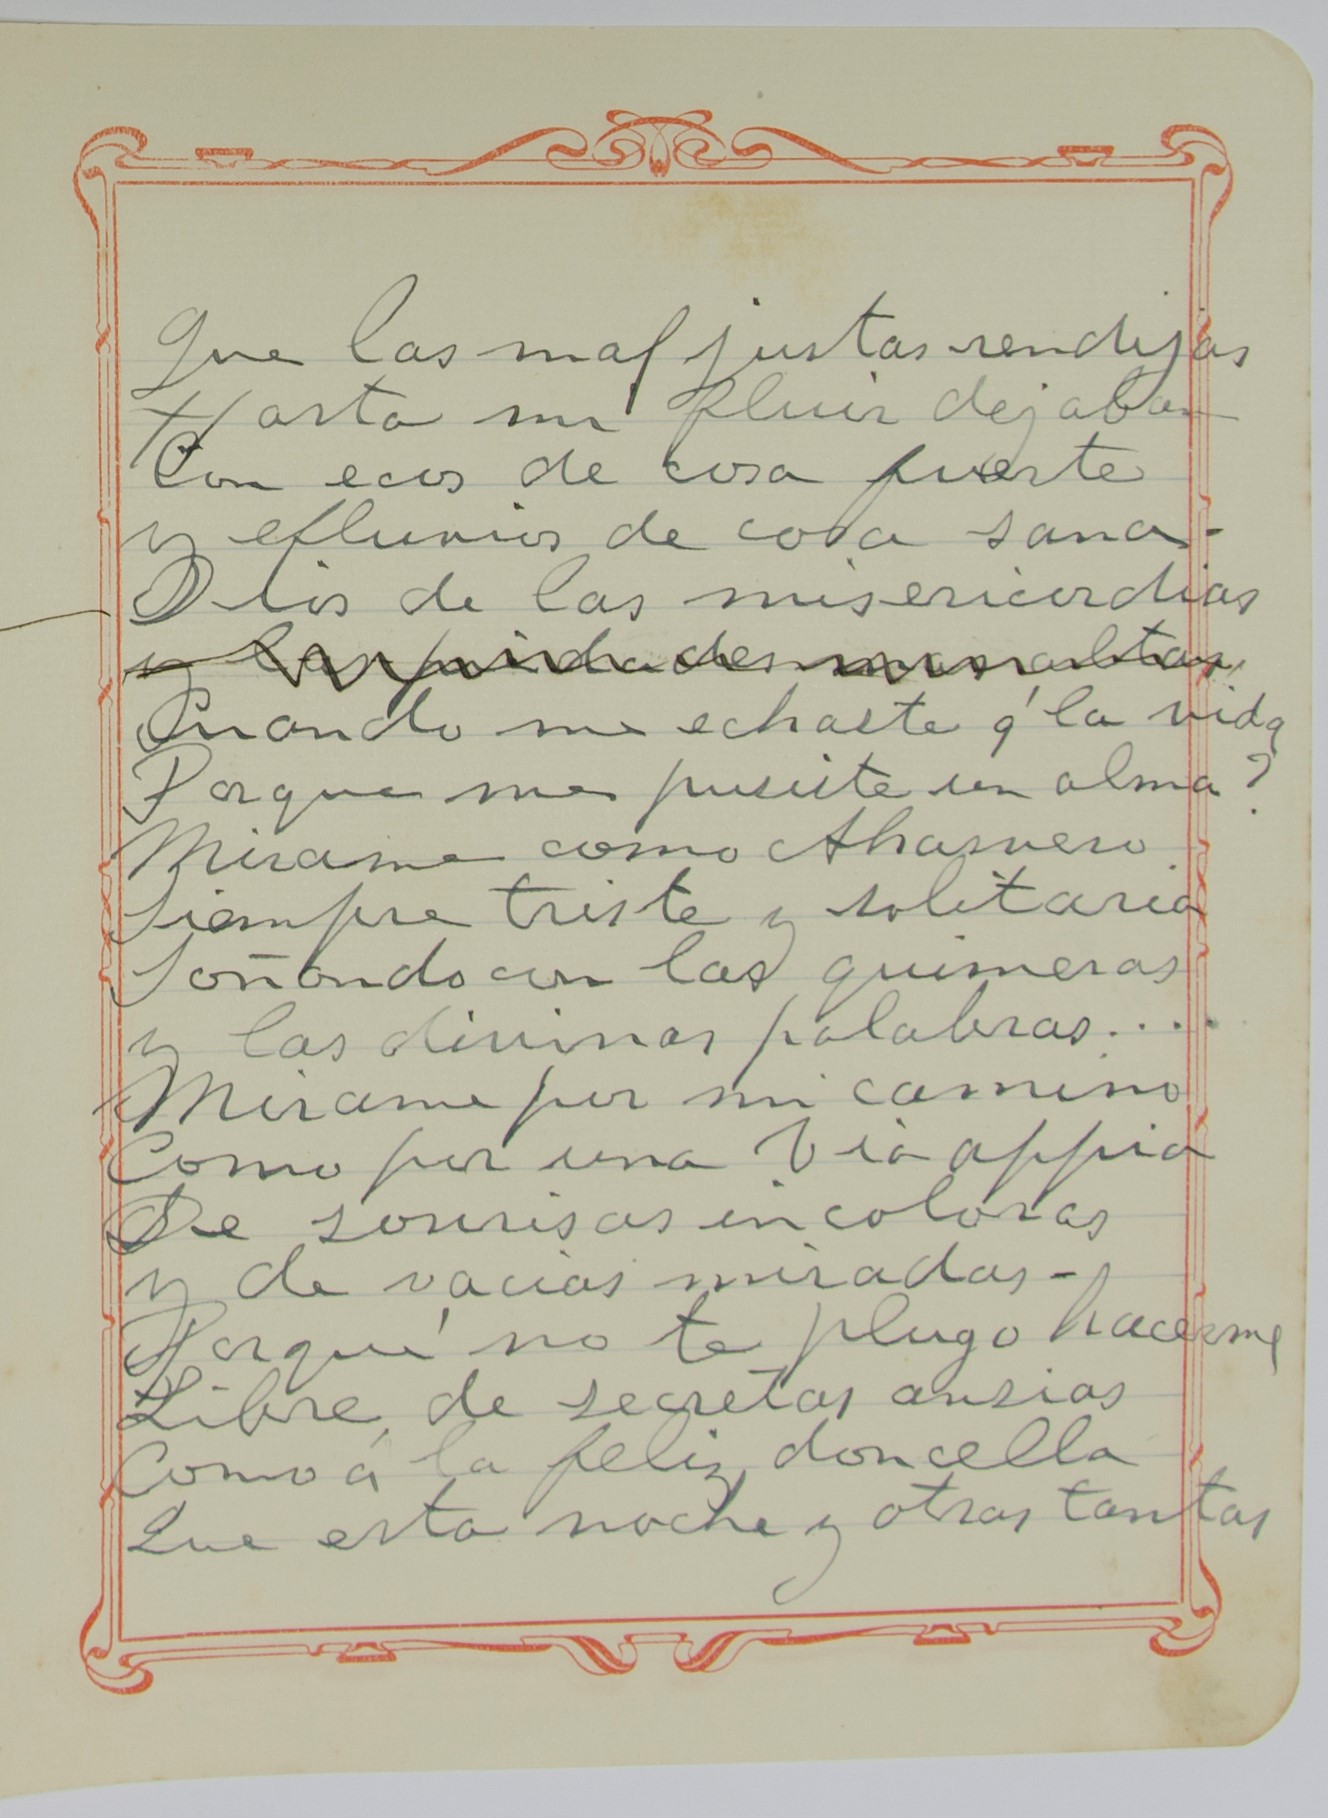 Que las mas justas rendijas
Hasta mi fluir dejaban
Con ecos de cosa fuerte
y efluvios de cosa sana-
Dios de las misericordias
y las piedades mas altas,
Cuando me echaste á la vida
Porque me pusiste un alma?
Mirame como Ahasvero
Siempre triste y solitaria
Soñando con las quimeras
y las divinas palabras....
Mirame por mi camino
Como por una Via appia
De sonrisas incoloras
y de vacias miradas-
Porqué no te plugo hacerme
Libre, de secretas ansias
Como á la feliz doncella
Que esta noche y otras tantas